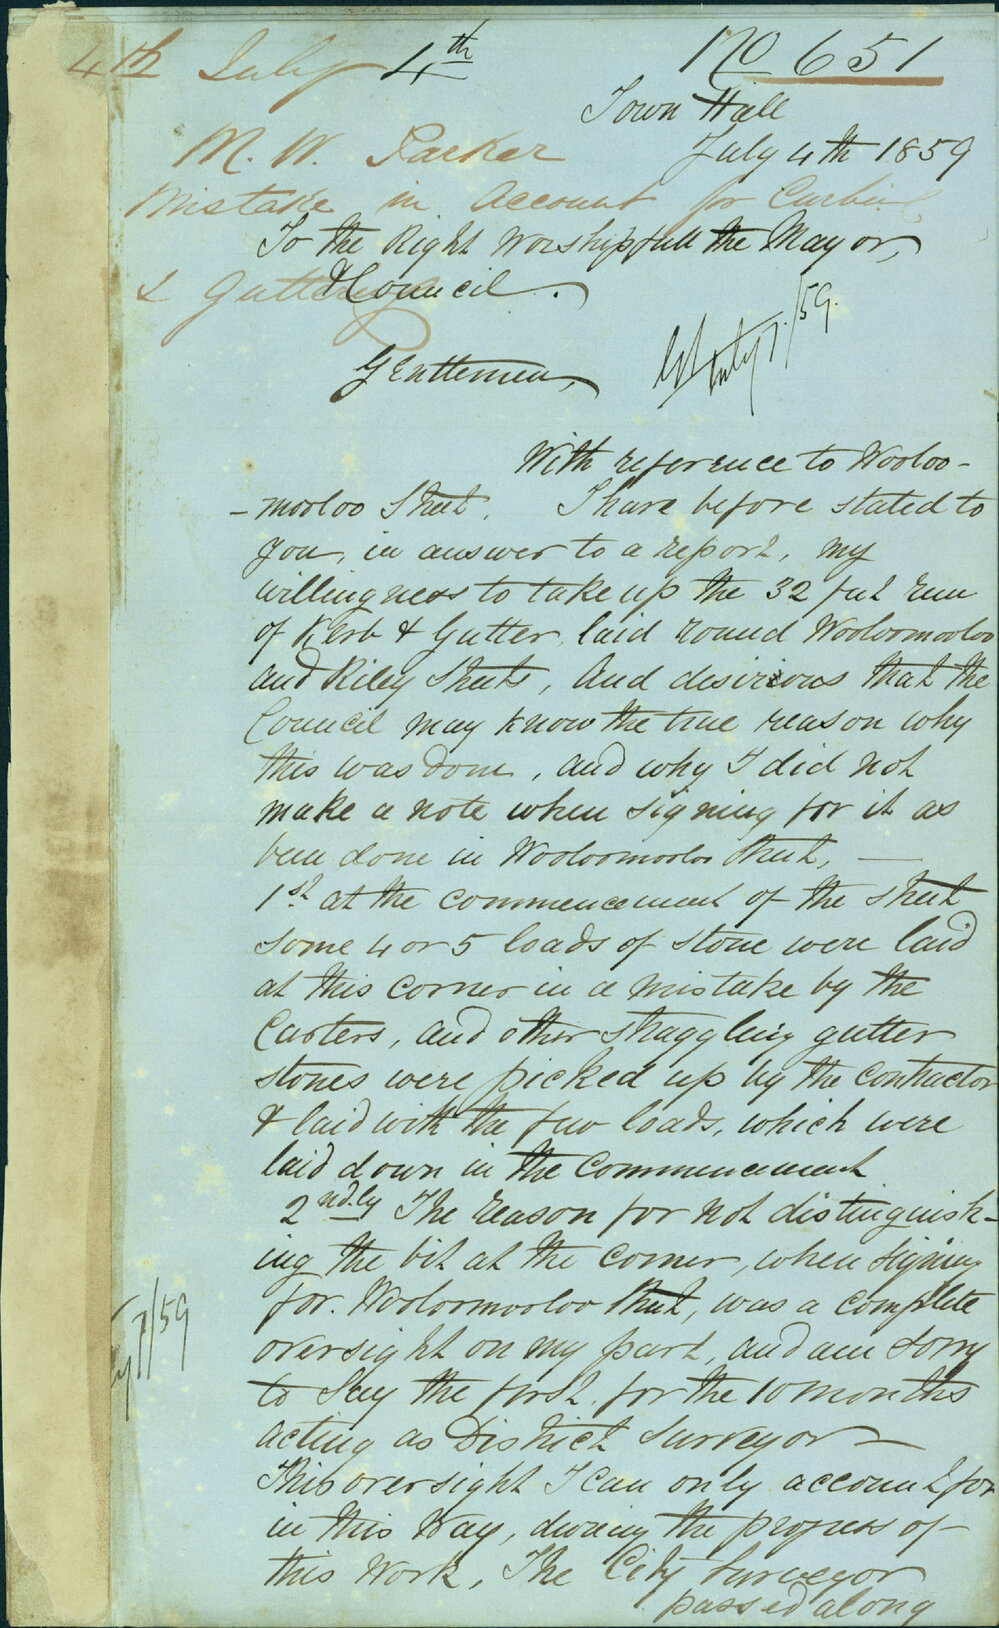 4th July 4th No 651
Town Hall
M. W. Parker July 4th 1859
Mistake in Account for Curbing
To the Right Worshipfull the Mayor,
& Guttering
& Council.
July 7/59.
Gentlemen,
With reference to Wooloo-
-mooloo Street. I have before stated to
you, in answer to a report, my
willingness to take up the 32 feet run
of Kerb & Gutter laid round Wooloomooloo
and Riley Streets, And desirious that the
Council may know the true reason why
this was done, and why I did not
make a note when signing for it as
been done in Wooloomooloo Street, —
1st. at the commencement of the street
some 4 or 5 loads of stone were laid
at this corner in a mistake by the
Carters, and other straggling gutter
stones were picked up by the Contractor
& laid with the few loads, which were
laid down in the Commencement
2ndly The reason for not distinguish-
ing the bit at the corner, when signing
for Wooloomooloo Street, was a complete
oversight on my part, and am sorry
7/59
to say the first, for the 10 months
acting as District Surveyor —
This oversight I can only account for
in this Way, during the progress of
this Work, The City Surveyor
passed along